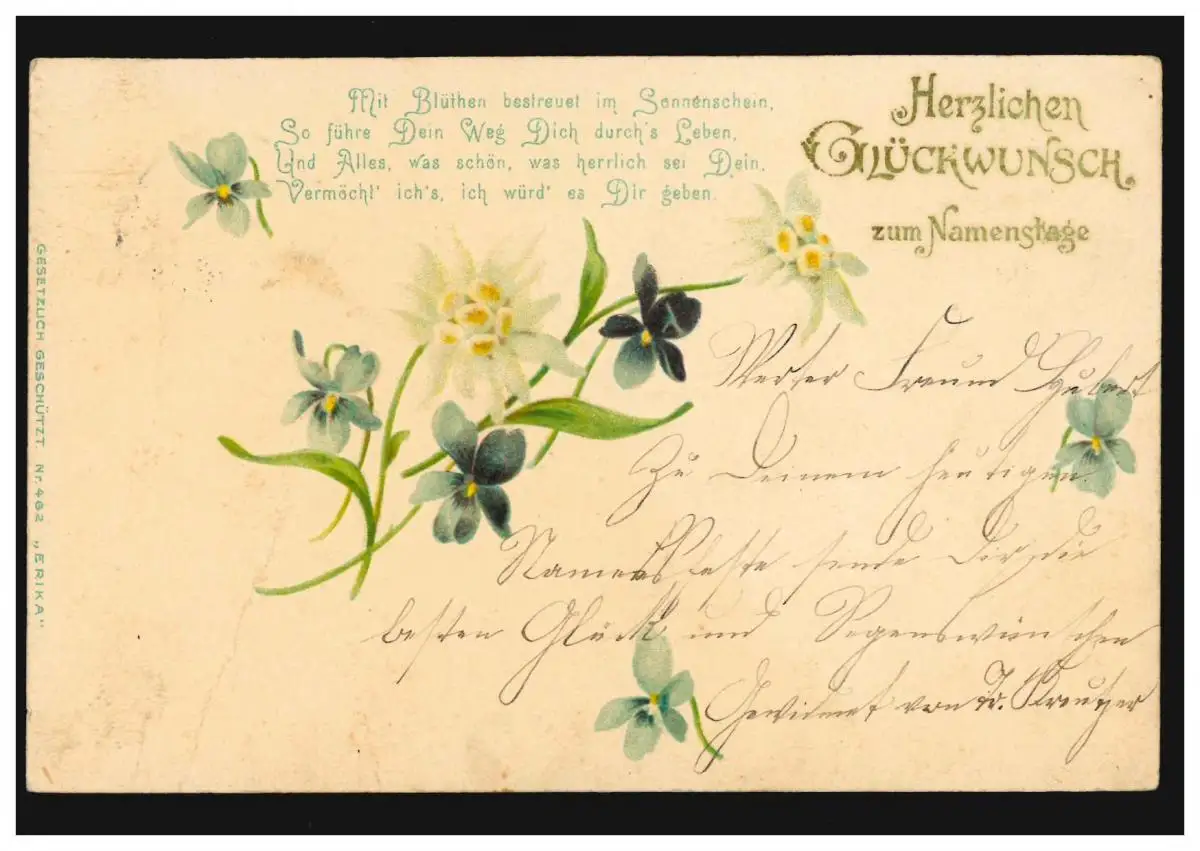 Mit Blüthen bestreuet im Sonnenschein,
So führe Dein Weg Dich durch's Leben,
Und Alles, was schön, was herrlich sei Dein,
Vermöcht' ich's, ich würd' es Dir geben.
Herzlichen
Glückwunsch
zum Namenstage
GESETZLICH GESCHÜTZT. Nr. 462 „ERIKA"
Werter Freund Hubert
Zu Deinem heutigen
Namensfeste sende Dir die
besten Glück und Segenswünschen
Gewidmet von Fr. Kreutzer